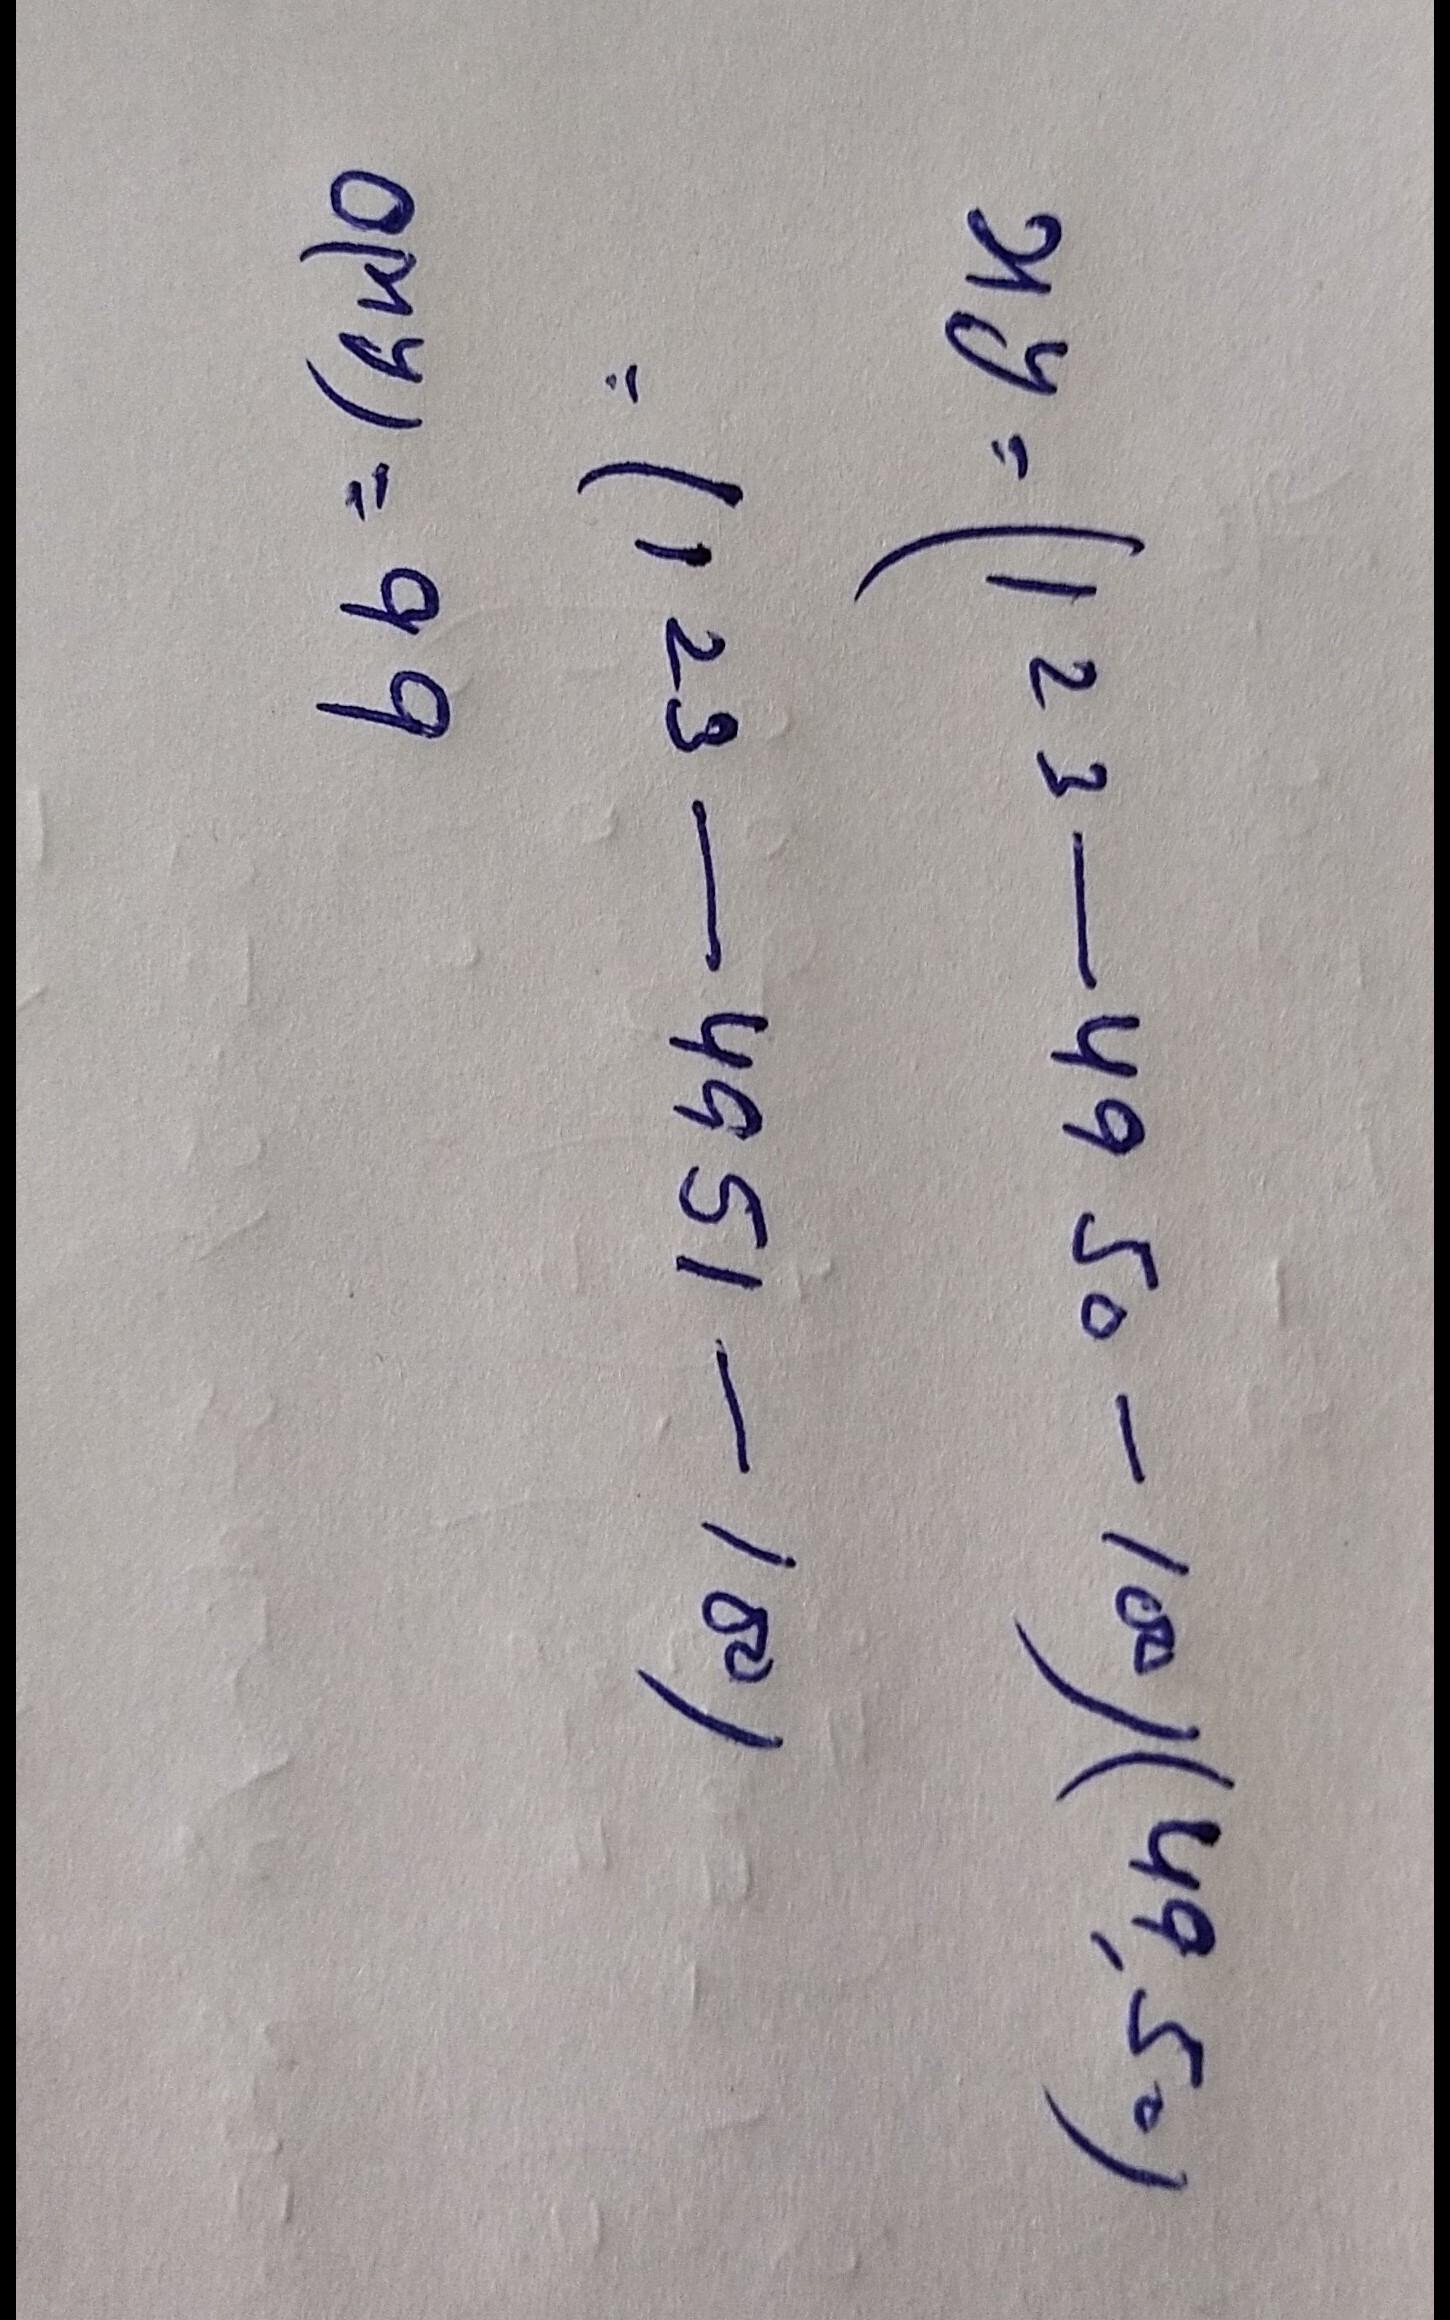 xy = (1 2 3 — 49 50 — 100)(49, 50)
= (1 2 3 — 49 51 — 100)
o(xy) = 99